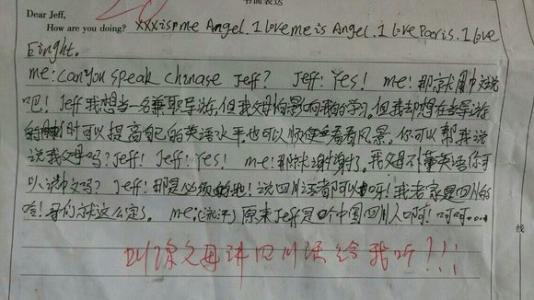 书面表达
Dear Jeff,
How are you doing? xxxisnme Angel. I love me is Angel. I love Paris. I love
Einght.
me: can you speak chinase Jeff? Jeff: Yes! me: 那就用中文说
吧! Jeff 我想当一名兼职导游,但我父母怕影响我的学习。但我却想在当导游
的时可以提高自己的英语水平,也可以顺便看看风景。你可以帮我说
说我父母吗? Jeff! Jeff: Yes! me: 那就谢谢了。我父母不懂英语你可
以讲中文吗? Jeff: 那是必须的地! 说四川话都可以呀! 我老家是四川的
哈! 哥们就这么定了。 me: 原来Jeff是个中国四川人啊! 呵呵....
叫你父母讲四川话给我听???!!!
线